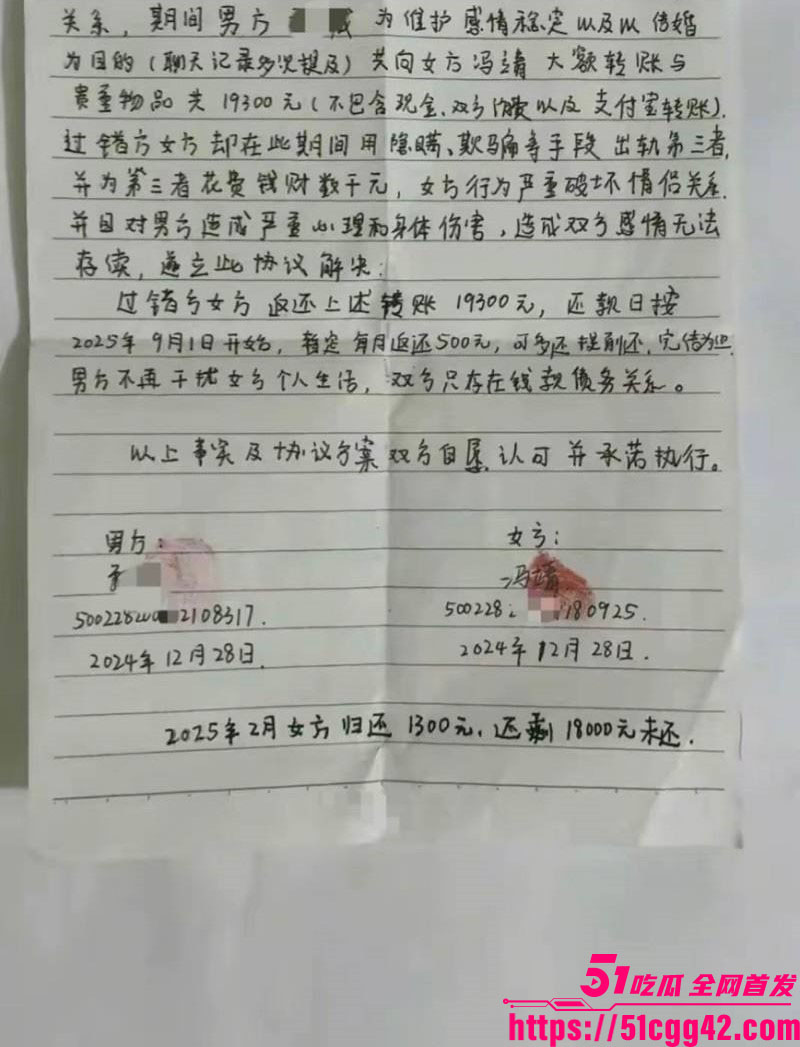 关系，期间男方 为维护感情稳定以及以结婚
为目的（聊天记录多次提及）共向女方冯靖大额转账与
贵重物品共19300元（不包含现金、双方消费以及支付宝转账）.
过错方女方却在此期间用隐瞒、欺骗等手段出轨第三者,
并为第三者花费钱财数千元，女方行为严重破坏情侣关系.
并且对男方造成严重心理和身体伤害，造成双方感情无法
存续，遂立此协议解决：
过错方女方返还上述转账19300元，还款日按
2025年9月1日开始，暂定每月返还500元，可多还提前还，完结为止.
男方不再干扰女方个人生活，双方只存在钱款债务关系。
以上事实及协议方案双方自愿认可并承诺执行。
男方：
女方：
冯靖
500228 2108317.
500228 180925.
2024年12月28日.
2024年12月28日.
2025年2月女方归还1300元，还剩18000元未还.
51吃瓜 全网首发
https://51cgg42.com